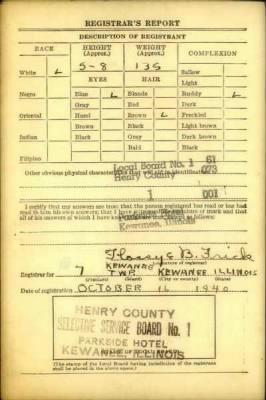 REGISTRAR'S REPORT
DESCRIPTION OF REGISTRANT
RACE HEIGHT (Approx.) WEIGHT (Approx.) COMPLEXION
White 5-8 135 Sallow
EYES HAIR Light
Negro Blue Blonde Ruddy
Gray Red Dark
Oriental Hazel Brown Freckled
Brown Black Light brown
Indian Black Gray Dark brown
Bald Black
Filipino
Other obvious physical characteristics that will aid in identification
Local Board No. 1 61
Henry County 073
1 001
Kewanee, Illinois
I certify that my answers are true; that the person registered has read or has had read to him his own answers; that I have witnessed his signature or mark and that all of his answers of which I have knowledge are true, except as follows:
Flossye B. Frick
(Signature of registrar)
Registrar for 7 KEWANEE TWP KEWANEE ILLINOIS
(Precinct) (Ward) (City or county) (State)
Date of registration OCTOBER 16 1940
HENRY COUNTY
SELECTIVE SERVICE BOARD No. 1
PARKSIDE HOTEL
KEWANEE, ILLINOIS
(The stamp of the Local Board having jurisdiction of the registrant
shall be placed in the above space.)